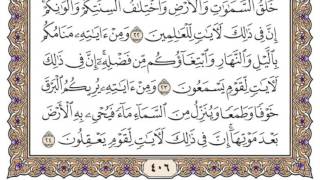 خَلْقُ ٱلسَّمَـٰوَٰتِ وَٱلْأَرْضِ وَٱخْتِلَـٰفُ أَلْسِنَتِكُمْ وَأَلْوَٰنِكُمْ
إِنَّ فِى ذَٰلِكَ لَـَٔايَـٰتٍ لِّلْعَـٰلِمِينَ ٢٢ وَمِنْ ءَايَـٰتِهِۦ مَنَامُكُم
بِٱلَّيْلِ وَٱلنَّهَارِ وَٱبْتِغَآؤُكُم مِّن فَضْلِهِۦٓ إِنَّ فِى ذَٰلِكَ
لَـَٔايَـٰتٍ لِّقَوْمٍ يَسْمَعُونَ ٢٣ وَمِنْ ءَايَـٰتِهِۦ يُرِيكُمُ ٱلْبَرْقَ
خَوْفًا وَطَمَعًا وَيُنَزِّلُ مِنَ ٱلسَّمَآءِ مَآءً فَيُحْىِۦ بِهِ ٱلْأَرْضَ
بَعْدَ مَوْتِهَآ إِنَّ فِى ذَٰلِكَ لَـَٔايَـٰتٍ لِّقَوْمٍ يَعْقِلُونَ ٢٤
٤٠٦